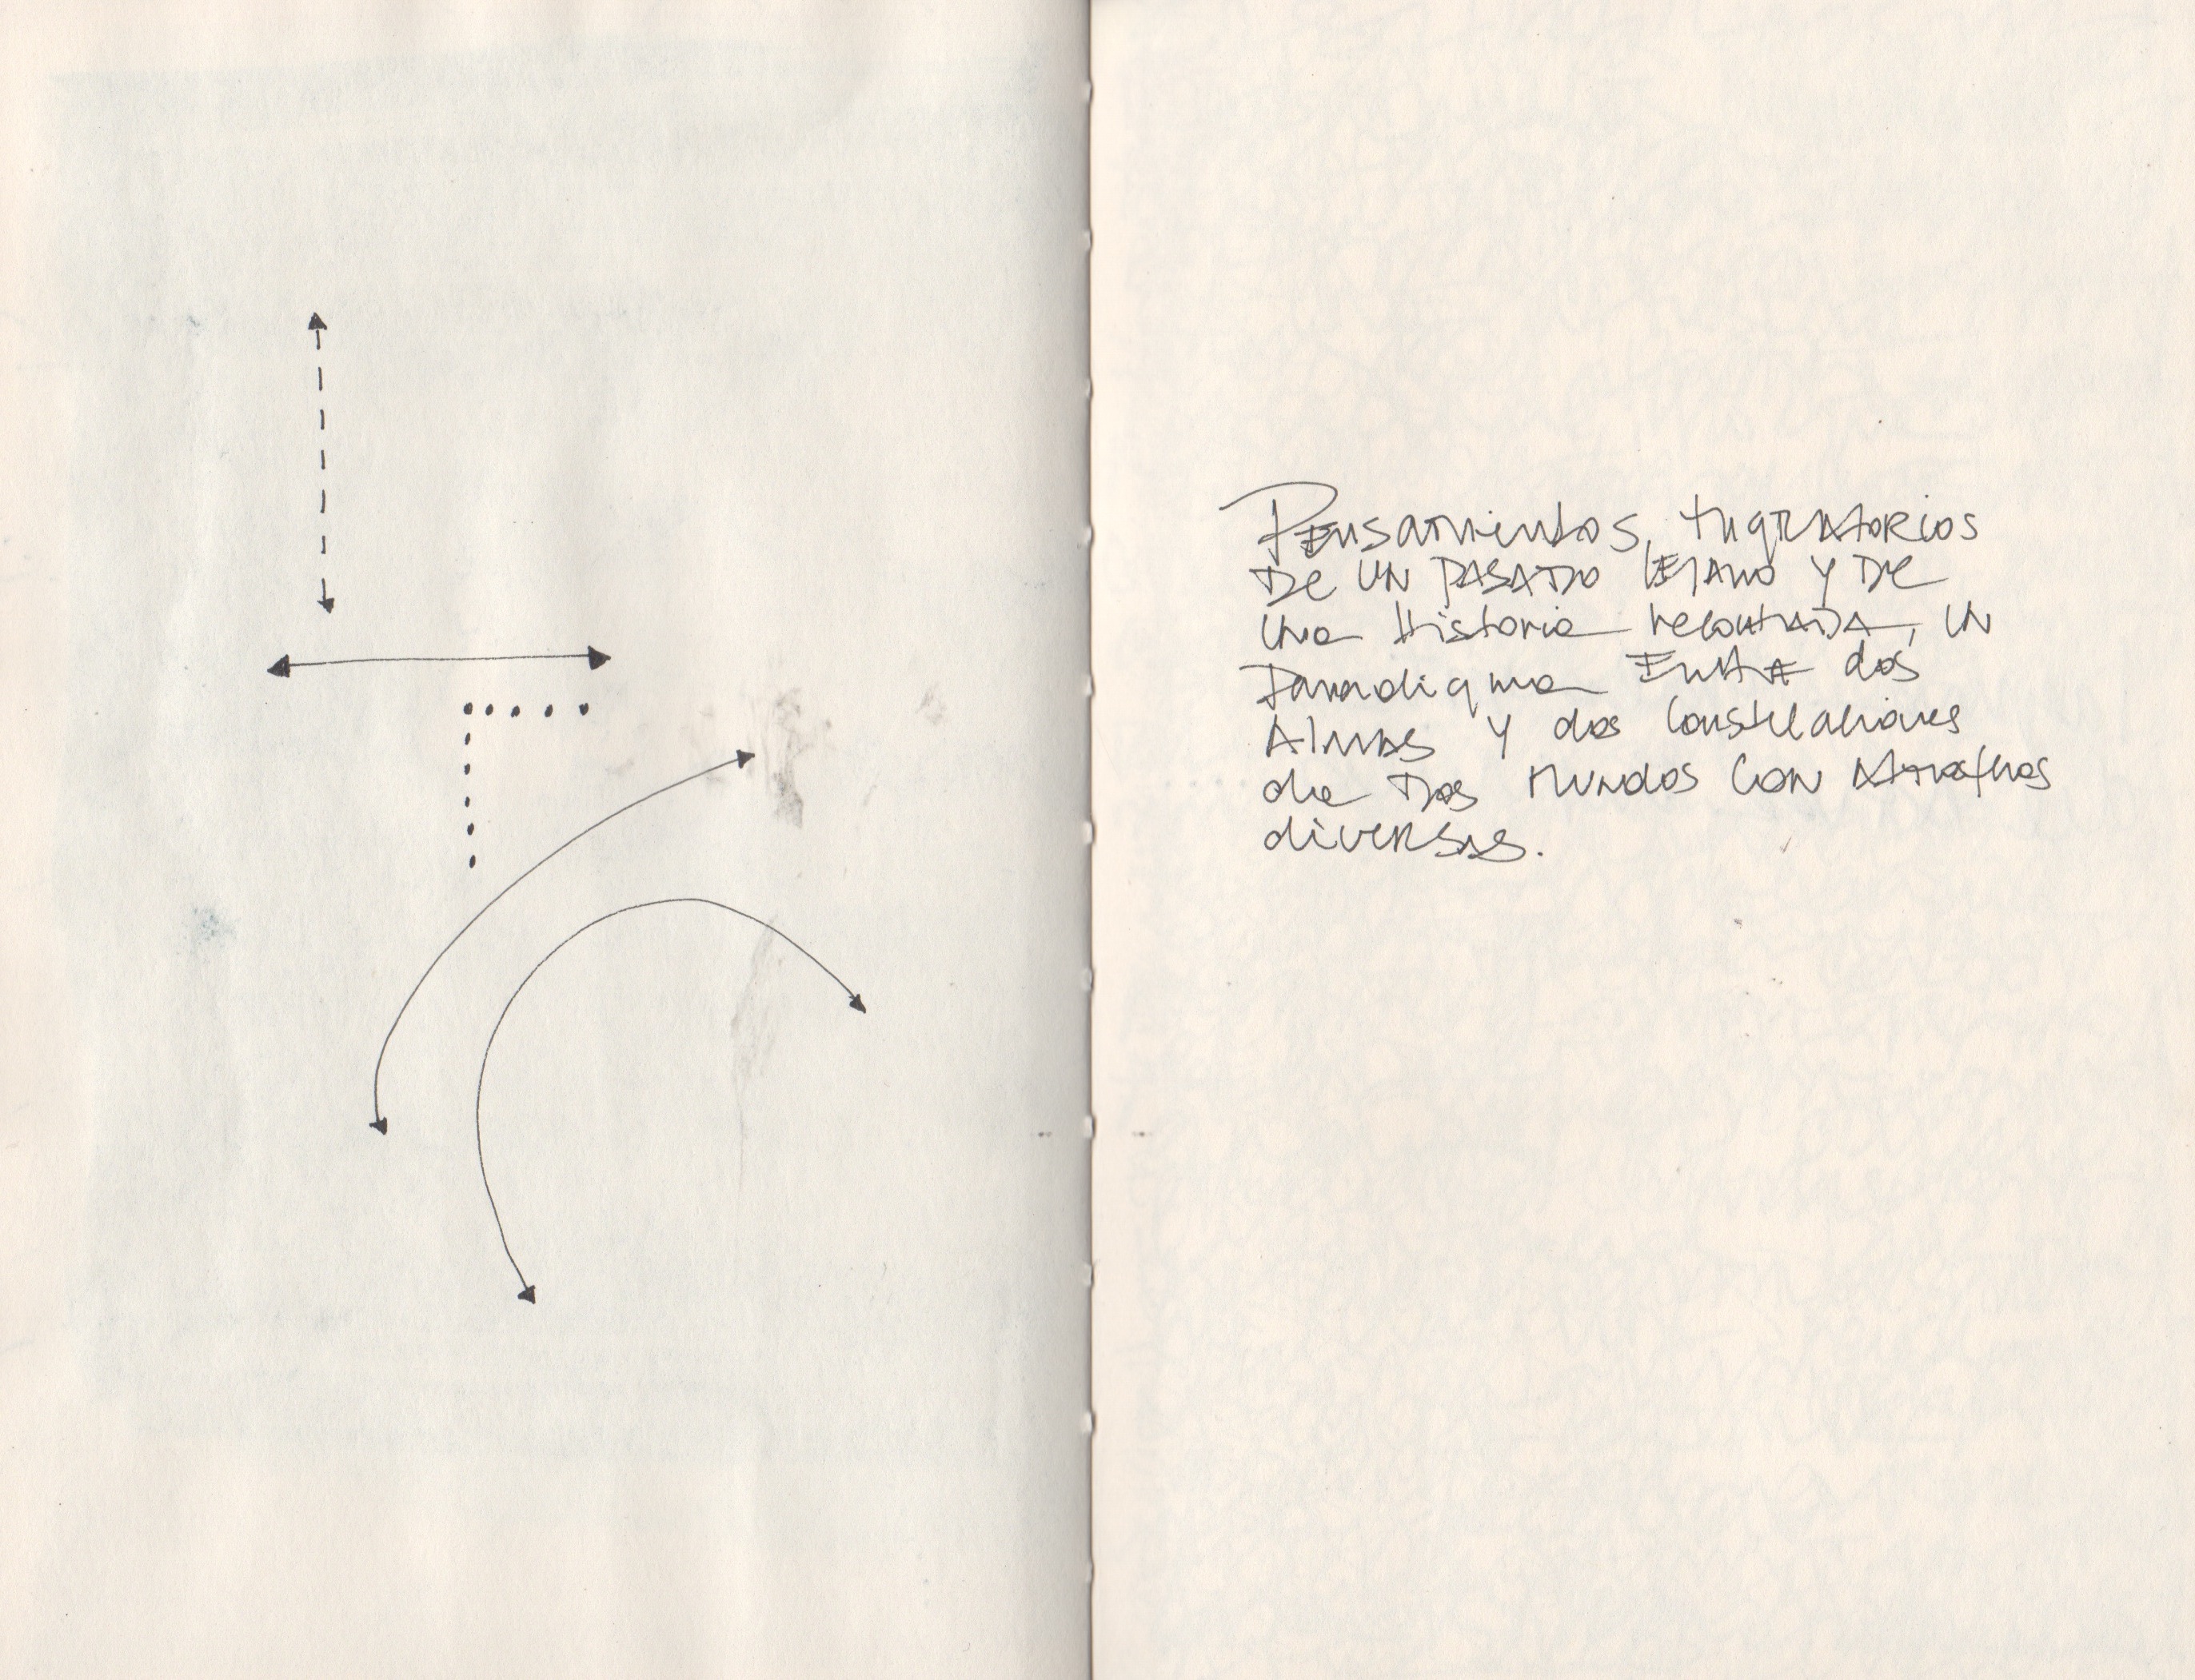 Pensamientos, migratorios
De UN PASADO LEJANO Y DE
Una Historia recontada, UN
Paradigma Entre dos
Almas Y dos Constelaciones
de Dos Mundos CON
diversas.